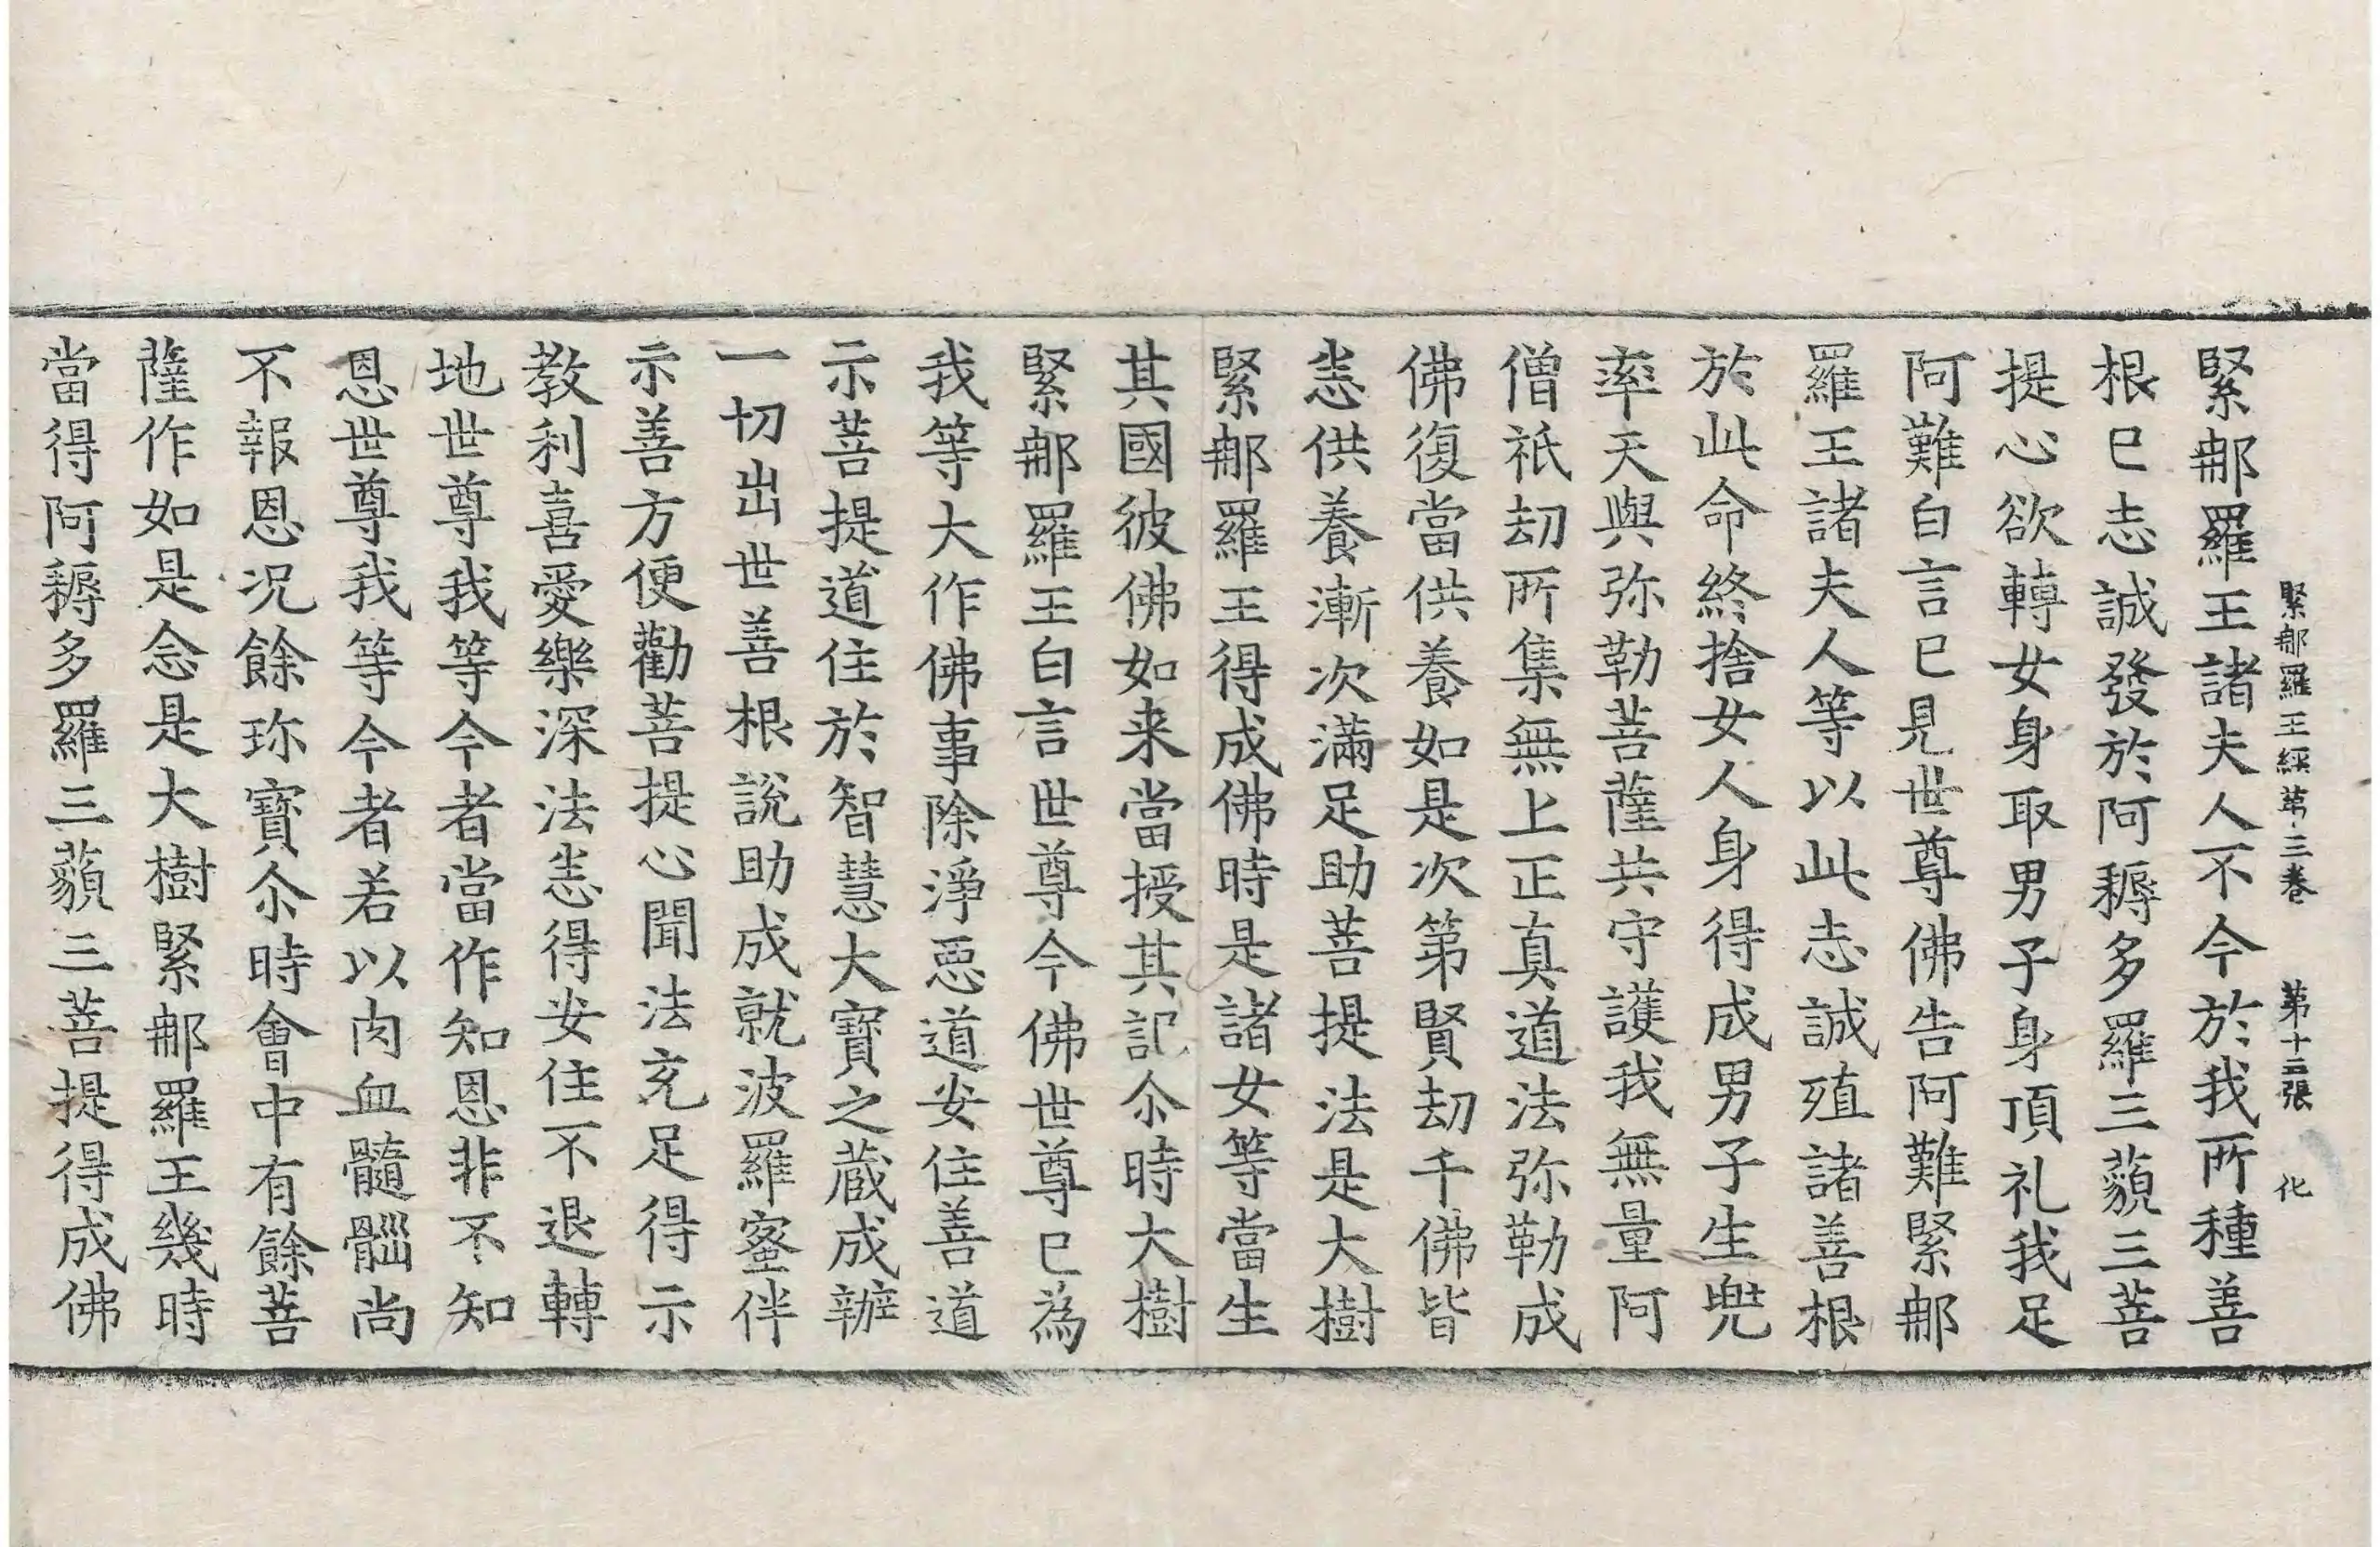 緊那羅王經第三卷 第十三張 化
緊那羅王諸夫人不今於我所種善
根已志誠發於阿耨多羅三藐三菩
提心欲轉女身取男子身頂礼我足
阿難白言已見世尊佛告阿難緊那
羅王諸夫人等以此志誠殖諸善根
於此命終捨女人身得成男子生兜
率天與弥勒菩薩共守護我無量阿
僧祇劫所集無上正真道法弥勒成
佛復當供養如是次第賢劫千佛皆
悉供養漸次滿足助菩提法是大樹
緊那羅王得成佛時是諸女等當生
其國彼佛如来當授其記尒時大樹
緊那羅王白言世尊今佛世尊已為
我等大作佛事除淨惡道安住善道
示菩提道住於智慧大寶之蔵成辦
一切出世善根說助成就波羅蜜伴
示善方便勸菩提心聞法充足得示
教利喜愛樂深法悉得安住不退轉
地世尊我等今者當作知恩非不知
恩世尊我等今者若以肉血髓𦛁尚
不報恩况餘珎寶尒時會中有餘菩
薩作如是念是大樹緊那羅王幾時
當得阿耨多羅三藐三菩提得成佛